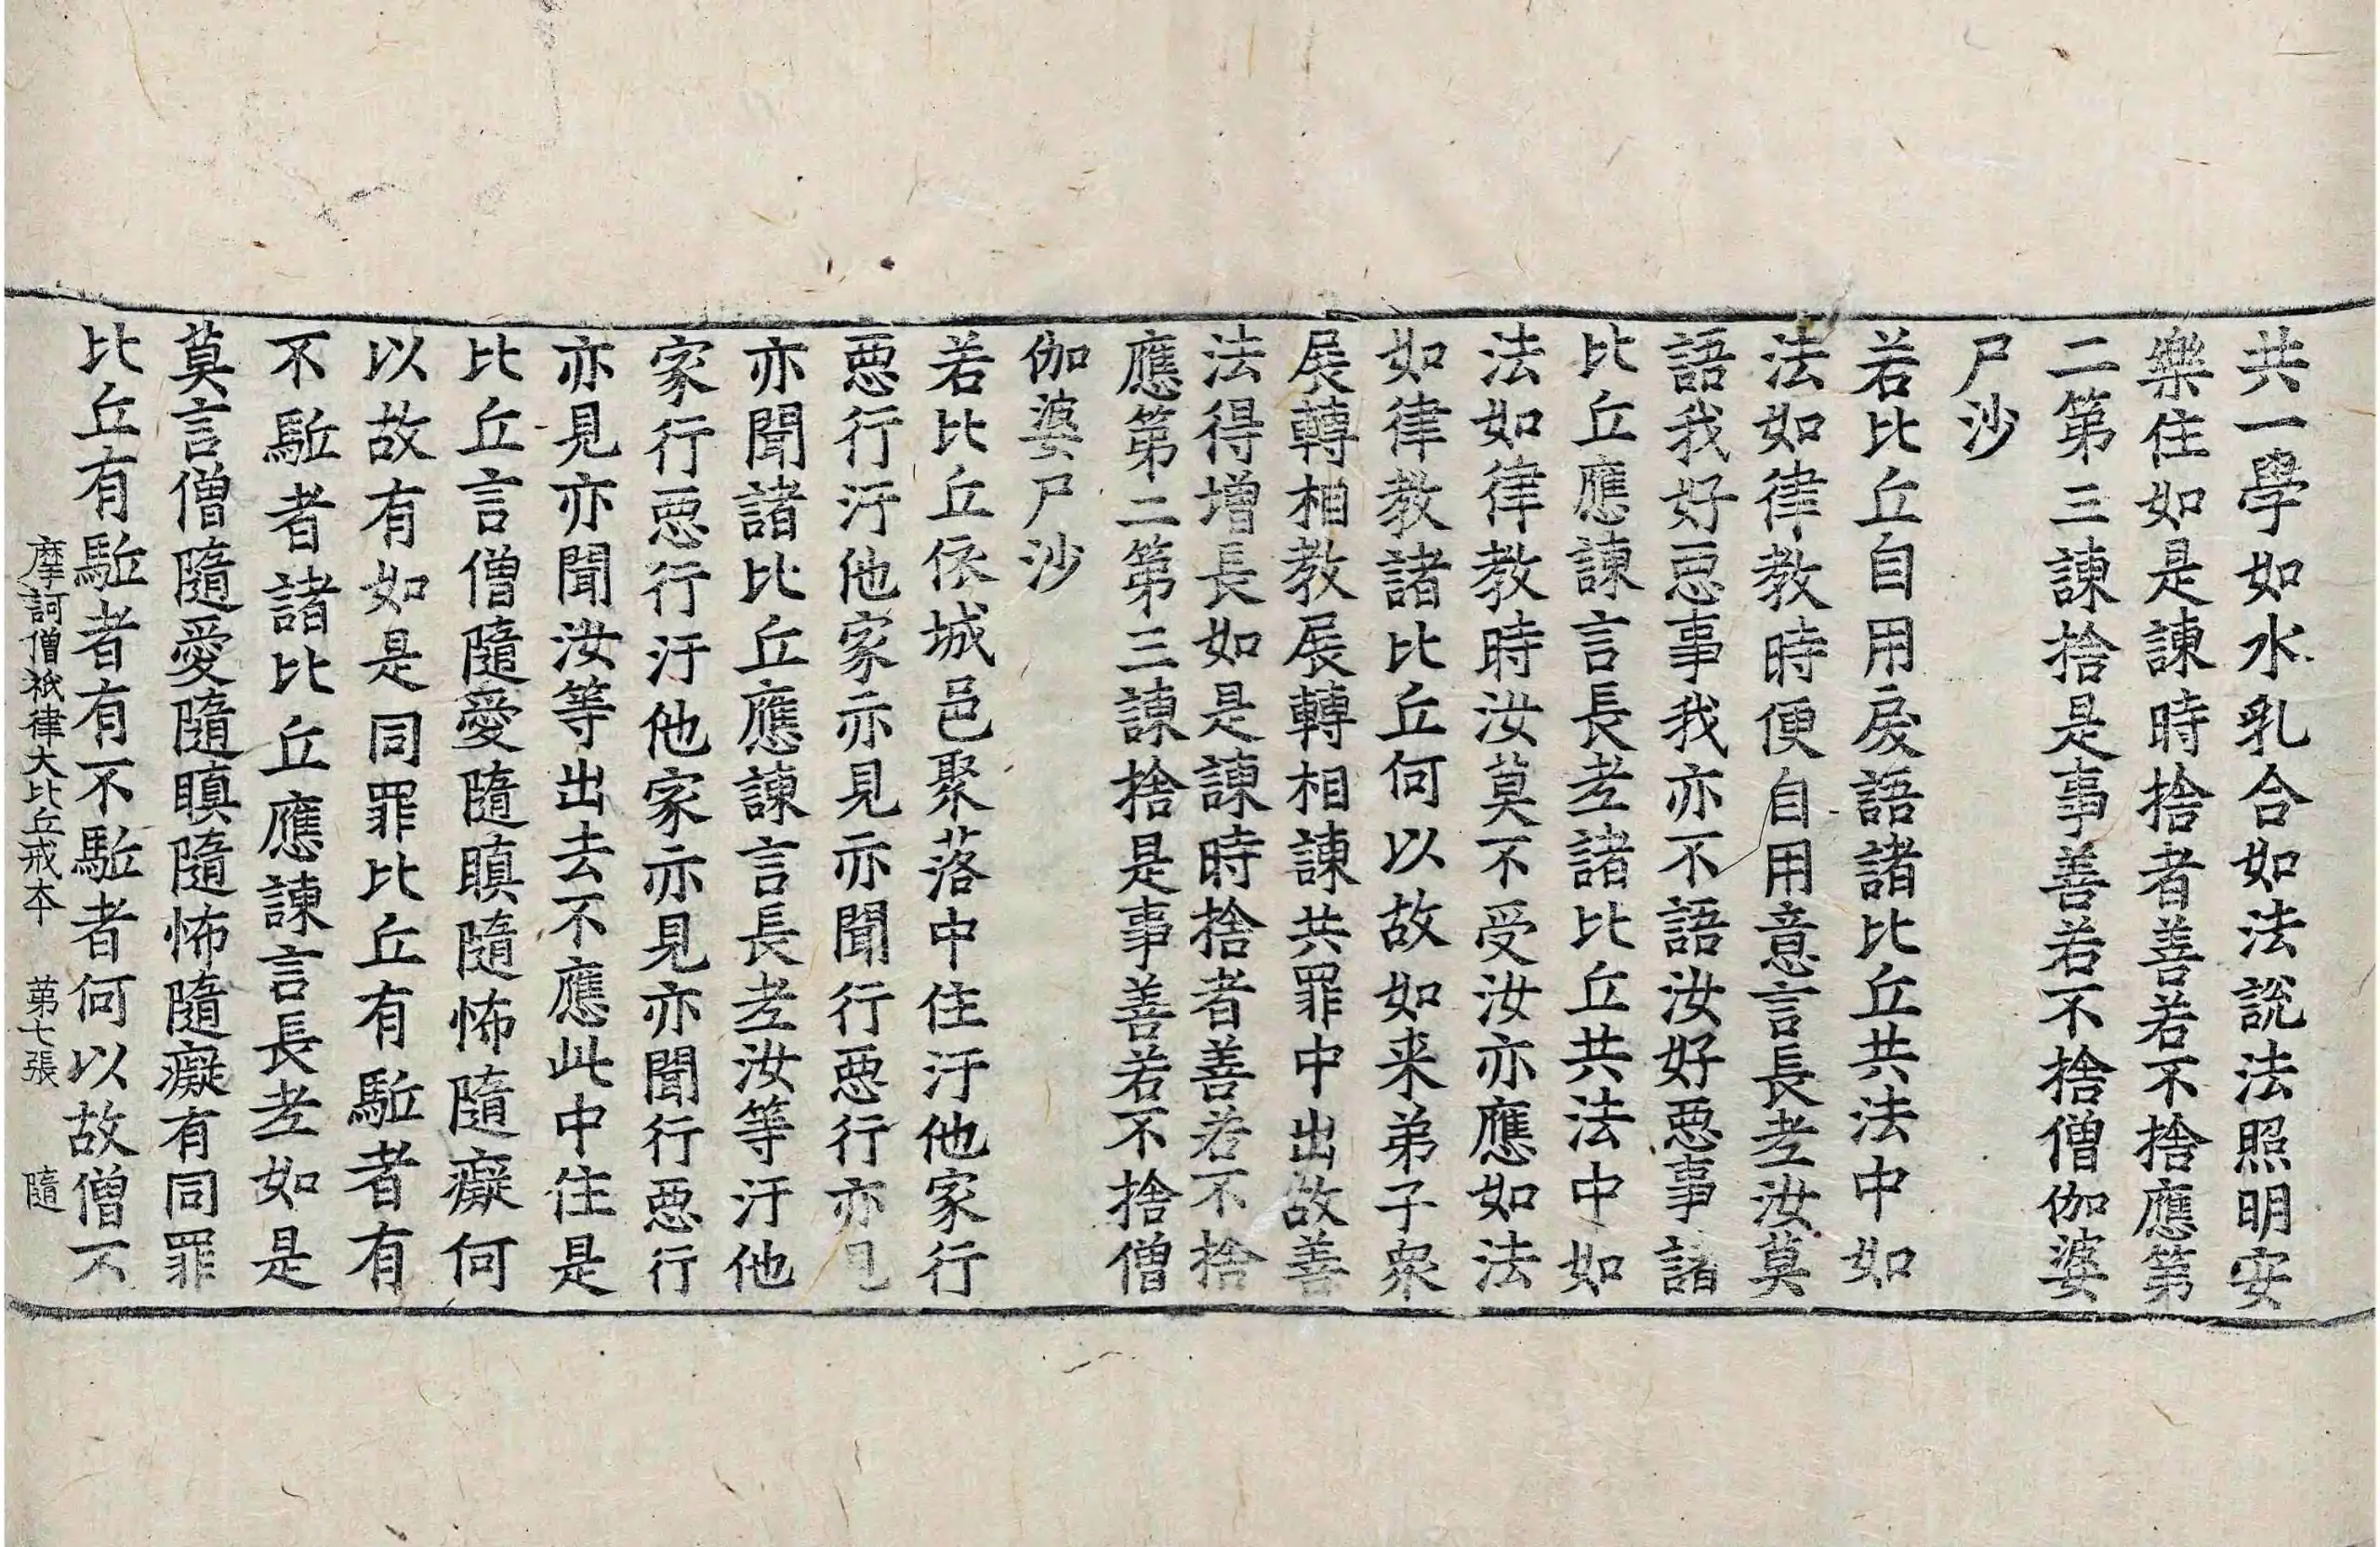 共一學如水乳合如法說法照明安
樂住如是諫時捨者善若不捨應第
二第三諫捨是事善若不捨僧伽婆
尸沙
若比丘自用戾語諸比丘共法中如
法如律教時便自用意言長老汝莫
語我好惡事我亦不語汝好惡事諸
比丘應諫言長老諸比丘共法中如
法如律教時汝莫不受汝亦應如法
如律教諸比丘何以故如来弟子衆
展轉相教展轉相諫共罪中出故善
法得增長如是諫時捨者善若不捨
應第二第三諫捨是事善若不捨僧
伽婆尸沙
若比丘依城邑聚落中住汙他家行
惡行汙他家亦見亦聞行惡行亦見
亦聞諸比丘應諫言長老汝等汙他
家行惡行汙他家亦見亦聞行惡行
亦見亦聞汝等出去不應此中住是
比丘言僧隨愛隨瞋隨怖隨癡何
以故有如是同罪比丘有駈者有
不駈者諸比丘應諫言長老如是
莫言僧隨愛隨瞋隨怖隨癡有同罪
比丘有駈者有不駈者何以故僧不
摩訶僧祇律大比丘戒本 第七張 隨